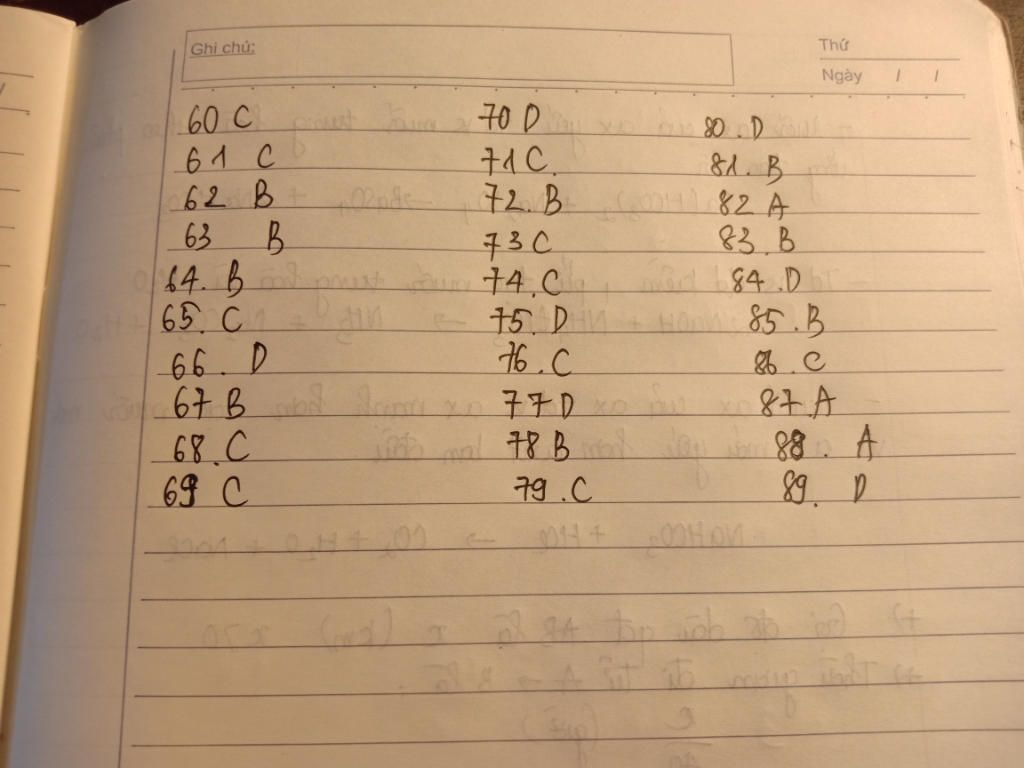 Ghi chú:
Thứ
Ngày / /
60 C
61 C
62 B
63 B
64. B
65. C
66. D
67 B
68. C
69 C
70 D
71 C.
72. B
73 C
74. C
75. D
76. C
77 D
78 B
79. C
80. D
81. B
82 A
83. B
84. D
85. B
86. C
87. A
88. A
89. D